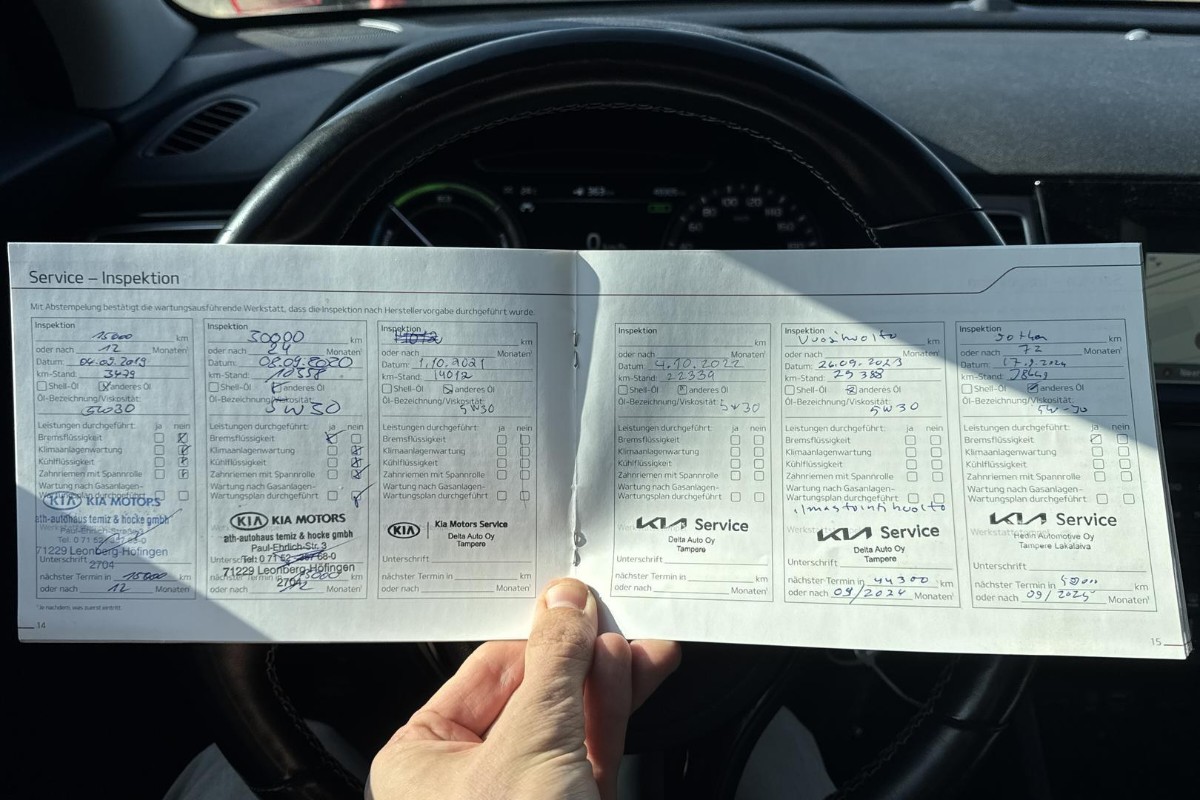 Service – Inspektion
Mit Abstempelung bestätigt die wartungsausführende Werkstatt, dass die Inspektion nach Herstellervorgabe durchgeführt wurde.
Inspektion
15000 km
oder nach 12 Monaten¹
Datum: 04.02.2019
km-Stand: 3429
Shell-Öl anderes Öl
Öl-Bezeichnung/Viskosität:
5W30
Leistungen durchgeführt: ja nein
Bremsflüssigkeit
Klimaanlagenwartung
Kühlflüssigkeit
Zahnriemen mit Spannrolle
Wartung nach Gasanlagen-
Wartungsplan durchgeführt
KIA KIA MOTORS
ath-autohaus temiz & hocke gmbh
Paul-Ehrlich-Straße
71229 Leonberg-Höfingen
2704
nächster Termin in 15000 km
oder nach 12 Monaten¹
¹Je nachdem, was zuerst eintritt.
14
Inspektion
30000 km
oder nach 24 Monaten¹
Datum: 08.09.2020
km-Stand: 10558
Shell-Öl anderes Öl
Öl-Bezeichnung/Viskosität:
5W30
Leistungen durchgeführt: ja nein
Bremsflüssigkeit
Klimaanlagenwartung
Kühlflüssigkeit
Zahnriemen mit Spannrolle
Wartung nach Gasanlagen-
Wartungsplan durchgeführt
KIA KIA MOTORS
ath-autohaus temiz & hocke gmbh
Paul-Ehrlich-Str. 3
71229 Leonberg-Höfingen
2704
nächster Termin in 15000 km
oder nach 12 Monaten¹
Inspektion
km
oder nach Monaten¹
Datum: 1.10.2021
km-Stand: 14012
Shell-Öl anderes Öl
Öl-Bezeichnung/Viskosität:
5W30
Leistungen durchgeführt: ja nein
Bremsflüssigkeit
Klimaanlagenwartung
Kühlflüssigkeit
Zahnriemen mit Spannrolle
Wartung nach Gasanlagen-
Wartungsplan durchgeführt
KIA Kia Motors Service
Delta Auto Oy
Tampere
Unterschrift
nächster Termin in km
oder nach Monaten¹
Inspektion
km
oder nach Monaten¹
Datum: 4.10.2022
km-Stand: 22339
Shell-Öl anderes Öl
Öl-Bezeichnung/Viskosität:
5W30
Leistungen durchgeführt: ja nein
Bremsflüssigkeit
Klimaanlagenwartung
Kühlflüssigkeit
Zahnriemen mit Spannrolle
Wartung nach Gasanlagen-
Wartungsplan durchgeführt
KIA Service
Delta Auto Oy
Tampere
Unterschrift
nächster Termin in km
oder nach Monaten¹
Inspektion
Vuosihuolto km
oder nach Monaten¹
Datum: 26.09.2023
km-Stand: 29388
Shell-Öl anderes Öl
Öl-Bezeichnung/Viskosität:
5W30
Leistungen durchgeführt: ja nein
Bremsflüssigkeit
Klimaanlagenwartung
Kühlflüssigkeit
Zahnriemen mit Spannrolle
Wartung nach Gasanlagen-
Wartungsplan durchgeführt
ilmastointihuolto
KIA Service
Delta Auto Oy
Tampere
Unterschrift
nächster Termin in 44300 km
oder nach 09/2024 Monaten¹
Inspektion
km
oder nach 72 Monaten¹
Datum: 17.9.2024
km-Stand:
Shell-Öl anderes Öl
Öl-Bezeichnung/Viskosität:
5W-30
Leistungen durchgeführt: ja nein
Bremsflüssigkeit
Klimaanlagenwartung
Kühlflüssigkeit
Zahnriemen mit Spannrolle
Wartung nach Gasanlagen-
Wartungsplan durchgeführt
KIA Service
Hedin Automotive Oy
Tampere Lakalaiva
Unterschrift
nächster Termin in km
oder nach 09/2025 Monaten¹
15